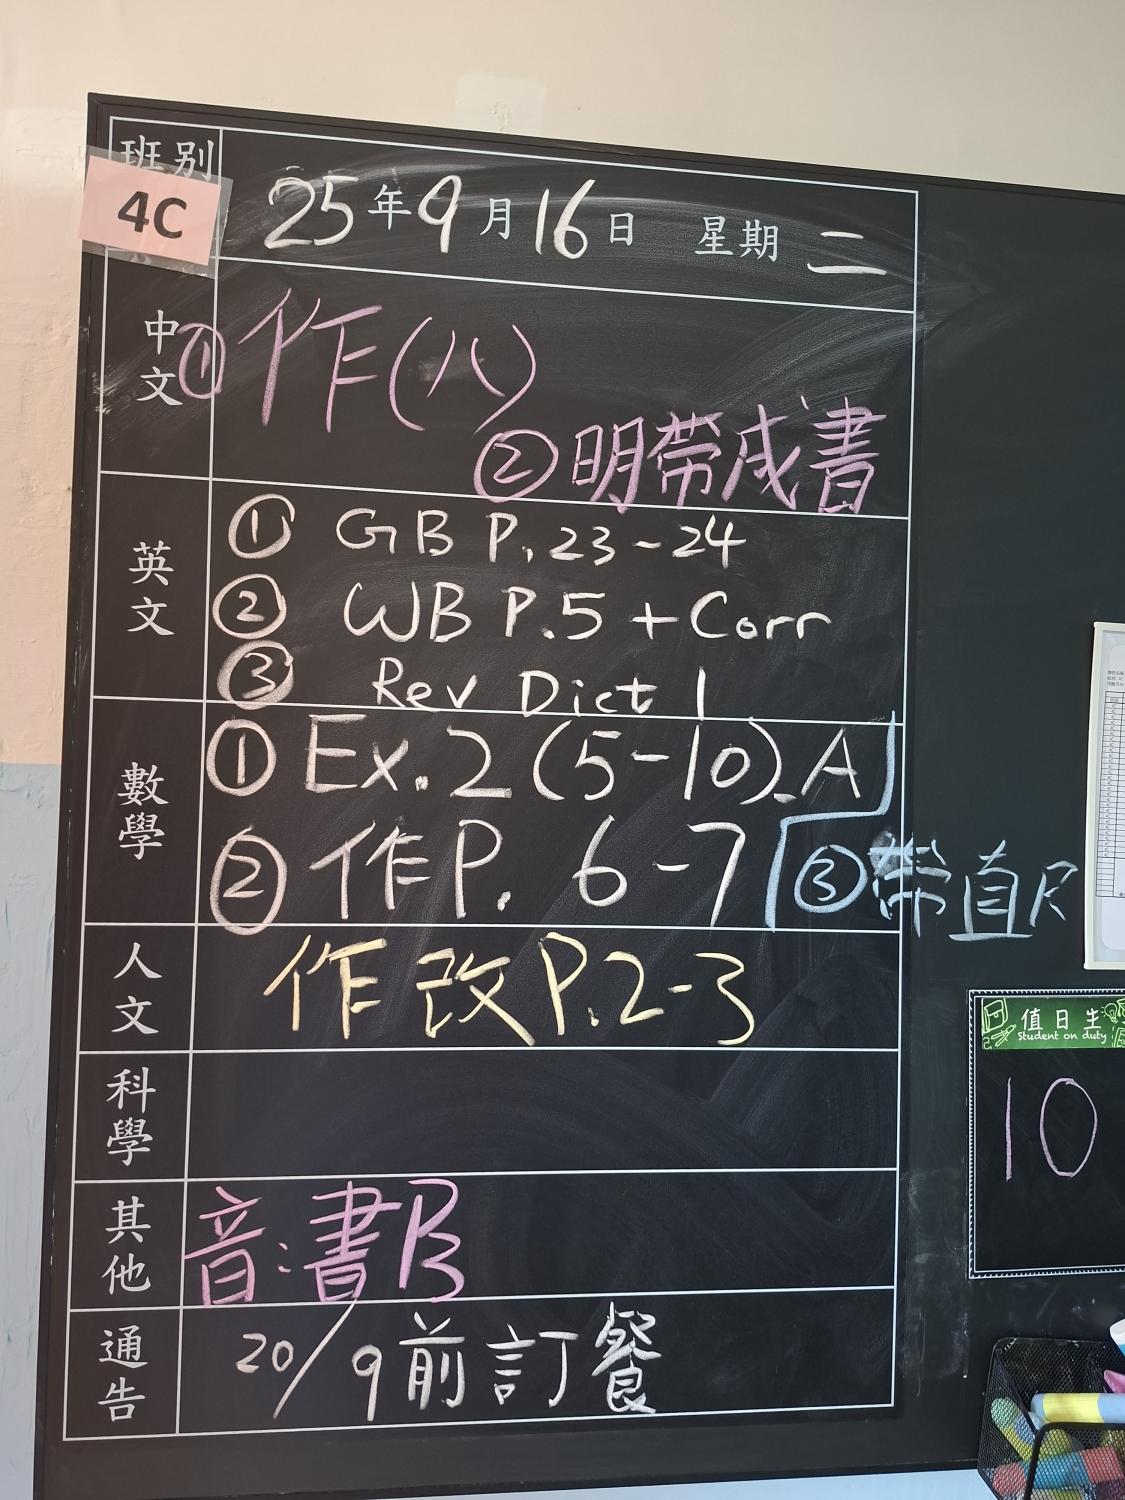 班別
4C
25年9月16日 星期二
中文
① 作(八)
② 明帶成書
英文
① GB P.23~24
② WB P.5 + Corr
③ Rev Dict 1
數學
① Ex.2 (5-10)_A
② 作P. 6-7
③ 帶直尺
人文
作 改 P.2-3
科學
其他
音:書B
通告
20/9前訂餐
值日生
Student on duty
10